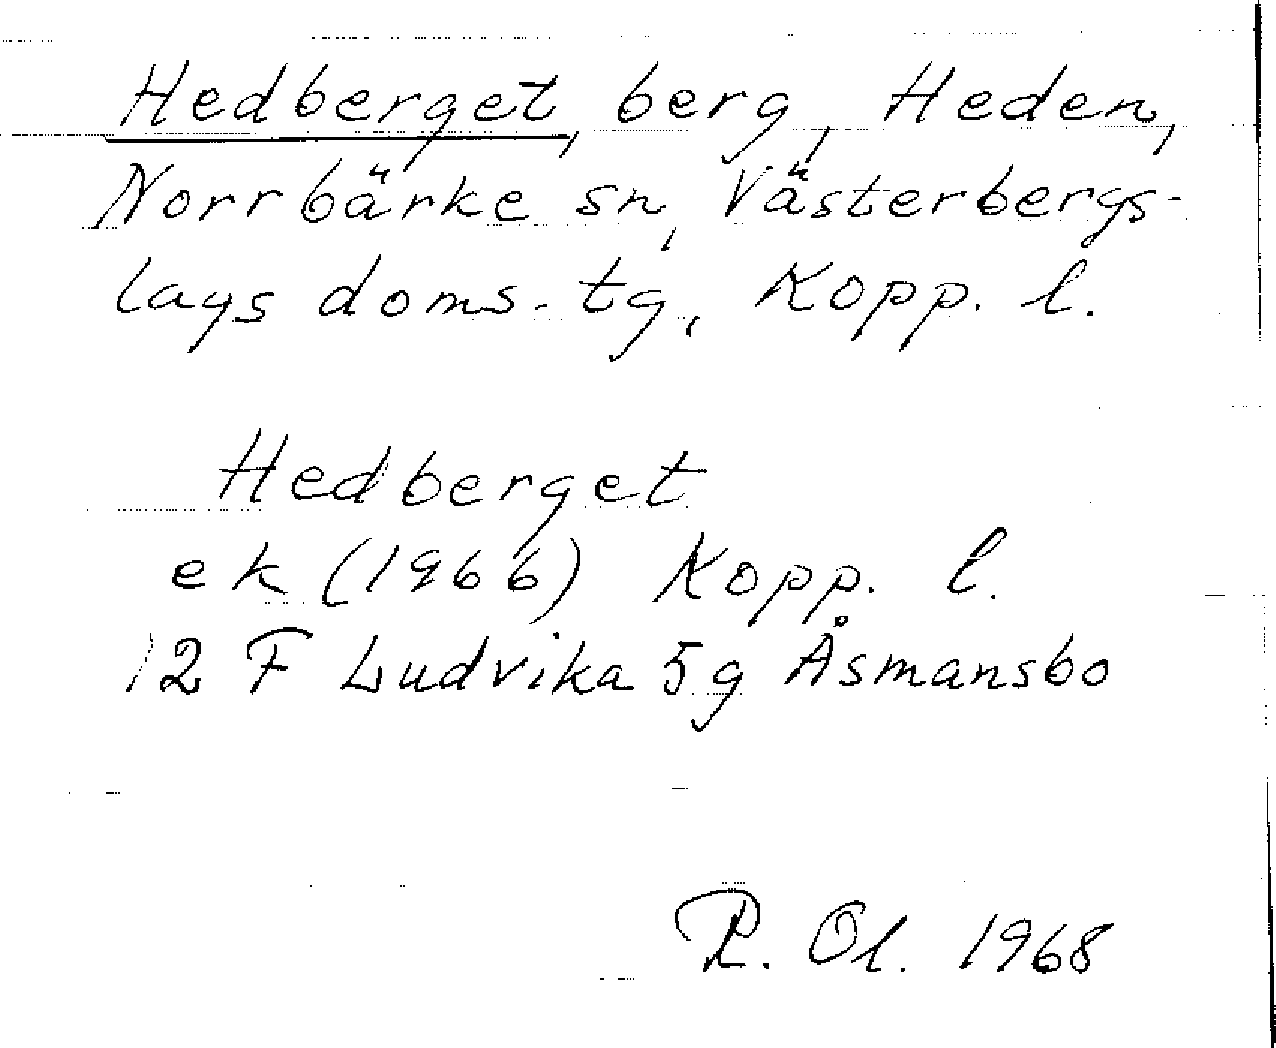 Hedberget, berg, Heden,
Norrbärke sn, Västerbergs-
lags doms. tg, Kopp. l.
Hedberget
ek (1966) Kopp. l.
12 F Ludvika 5g Åsmansbo
R. Ol. 1968